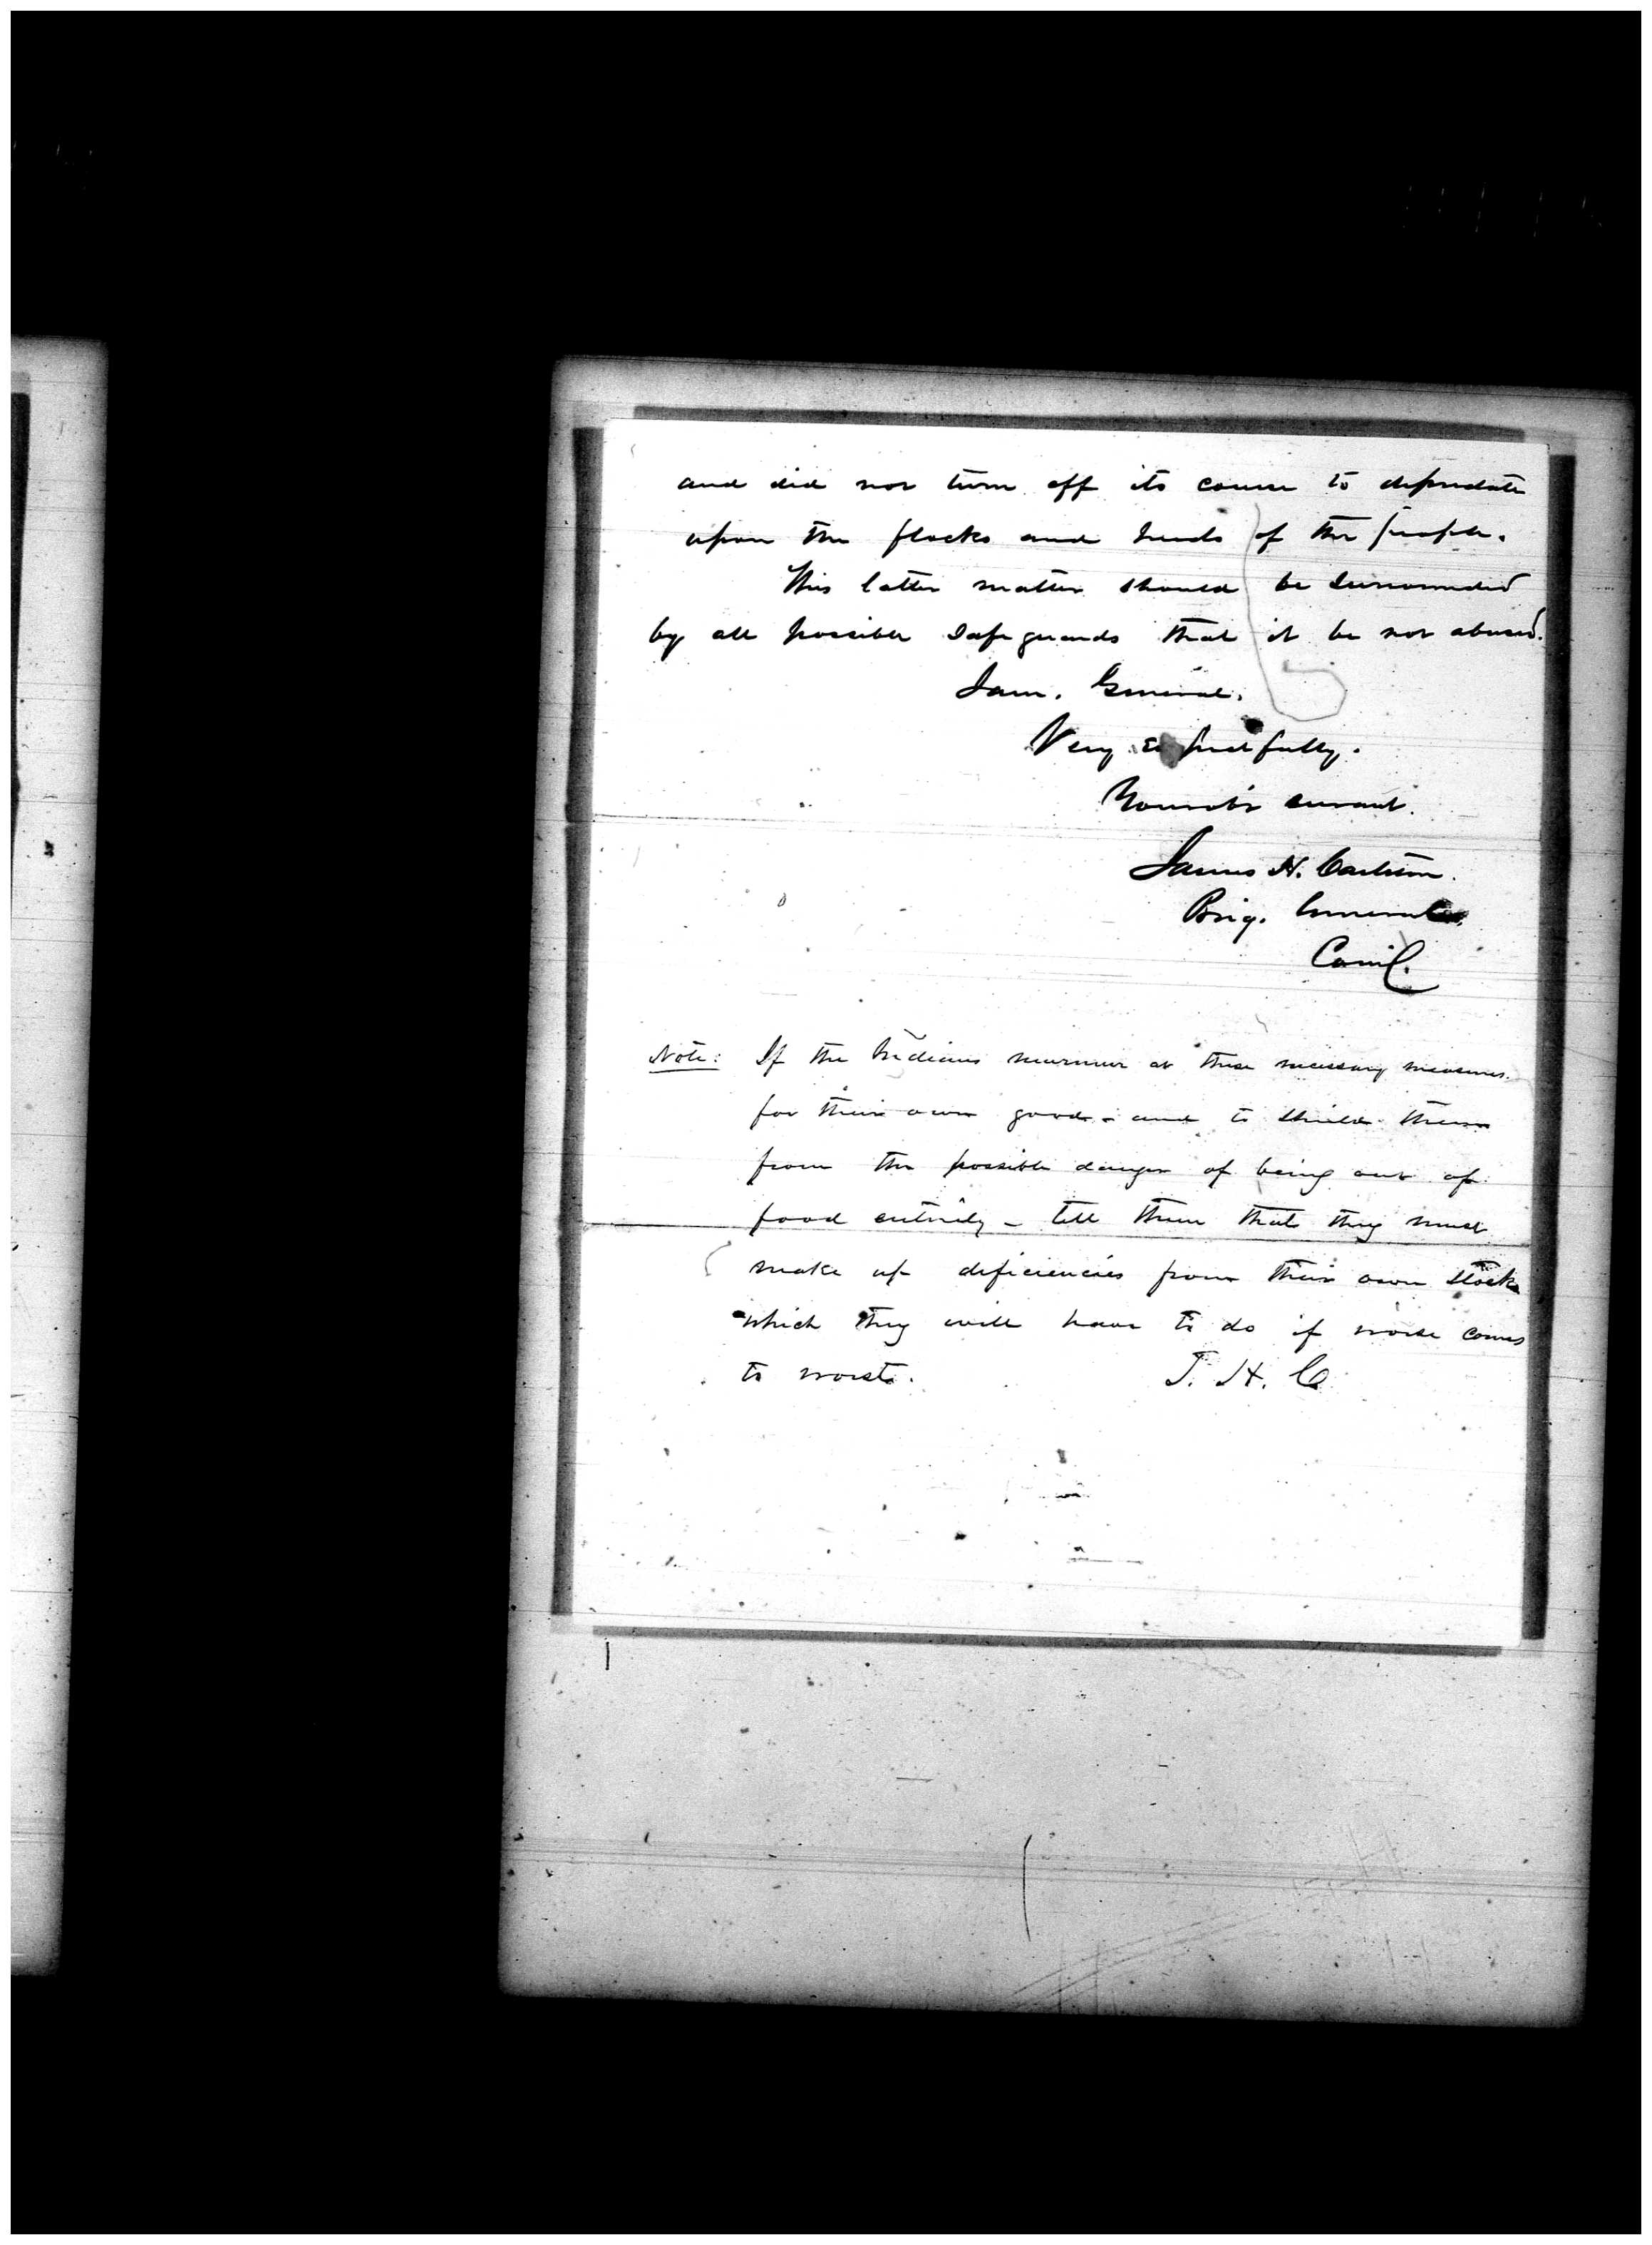 and did not turn off its course to depredate
upon the flocks and herds of the people.
This latter matter should be surrounded
by all possible safeguards that it be not abused.
I am, General,
Very respectfully,
Your obt servant.
James H. Carleton.
Brig. General
Com'g.
Note: If the Indians murmur at these necessary measures
for their own good - and to shield them
from the possible danger of being out of
food entirely - tell them that they must
make up deficiencies from their own stock
which they will have to do if worse comes
to worst. J. H. C